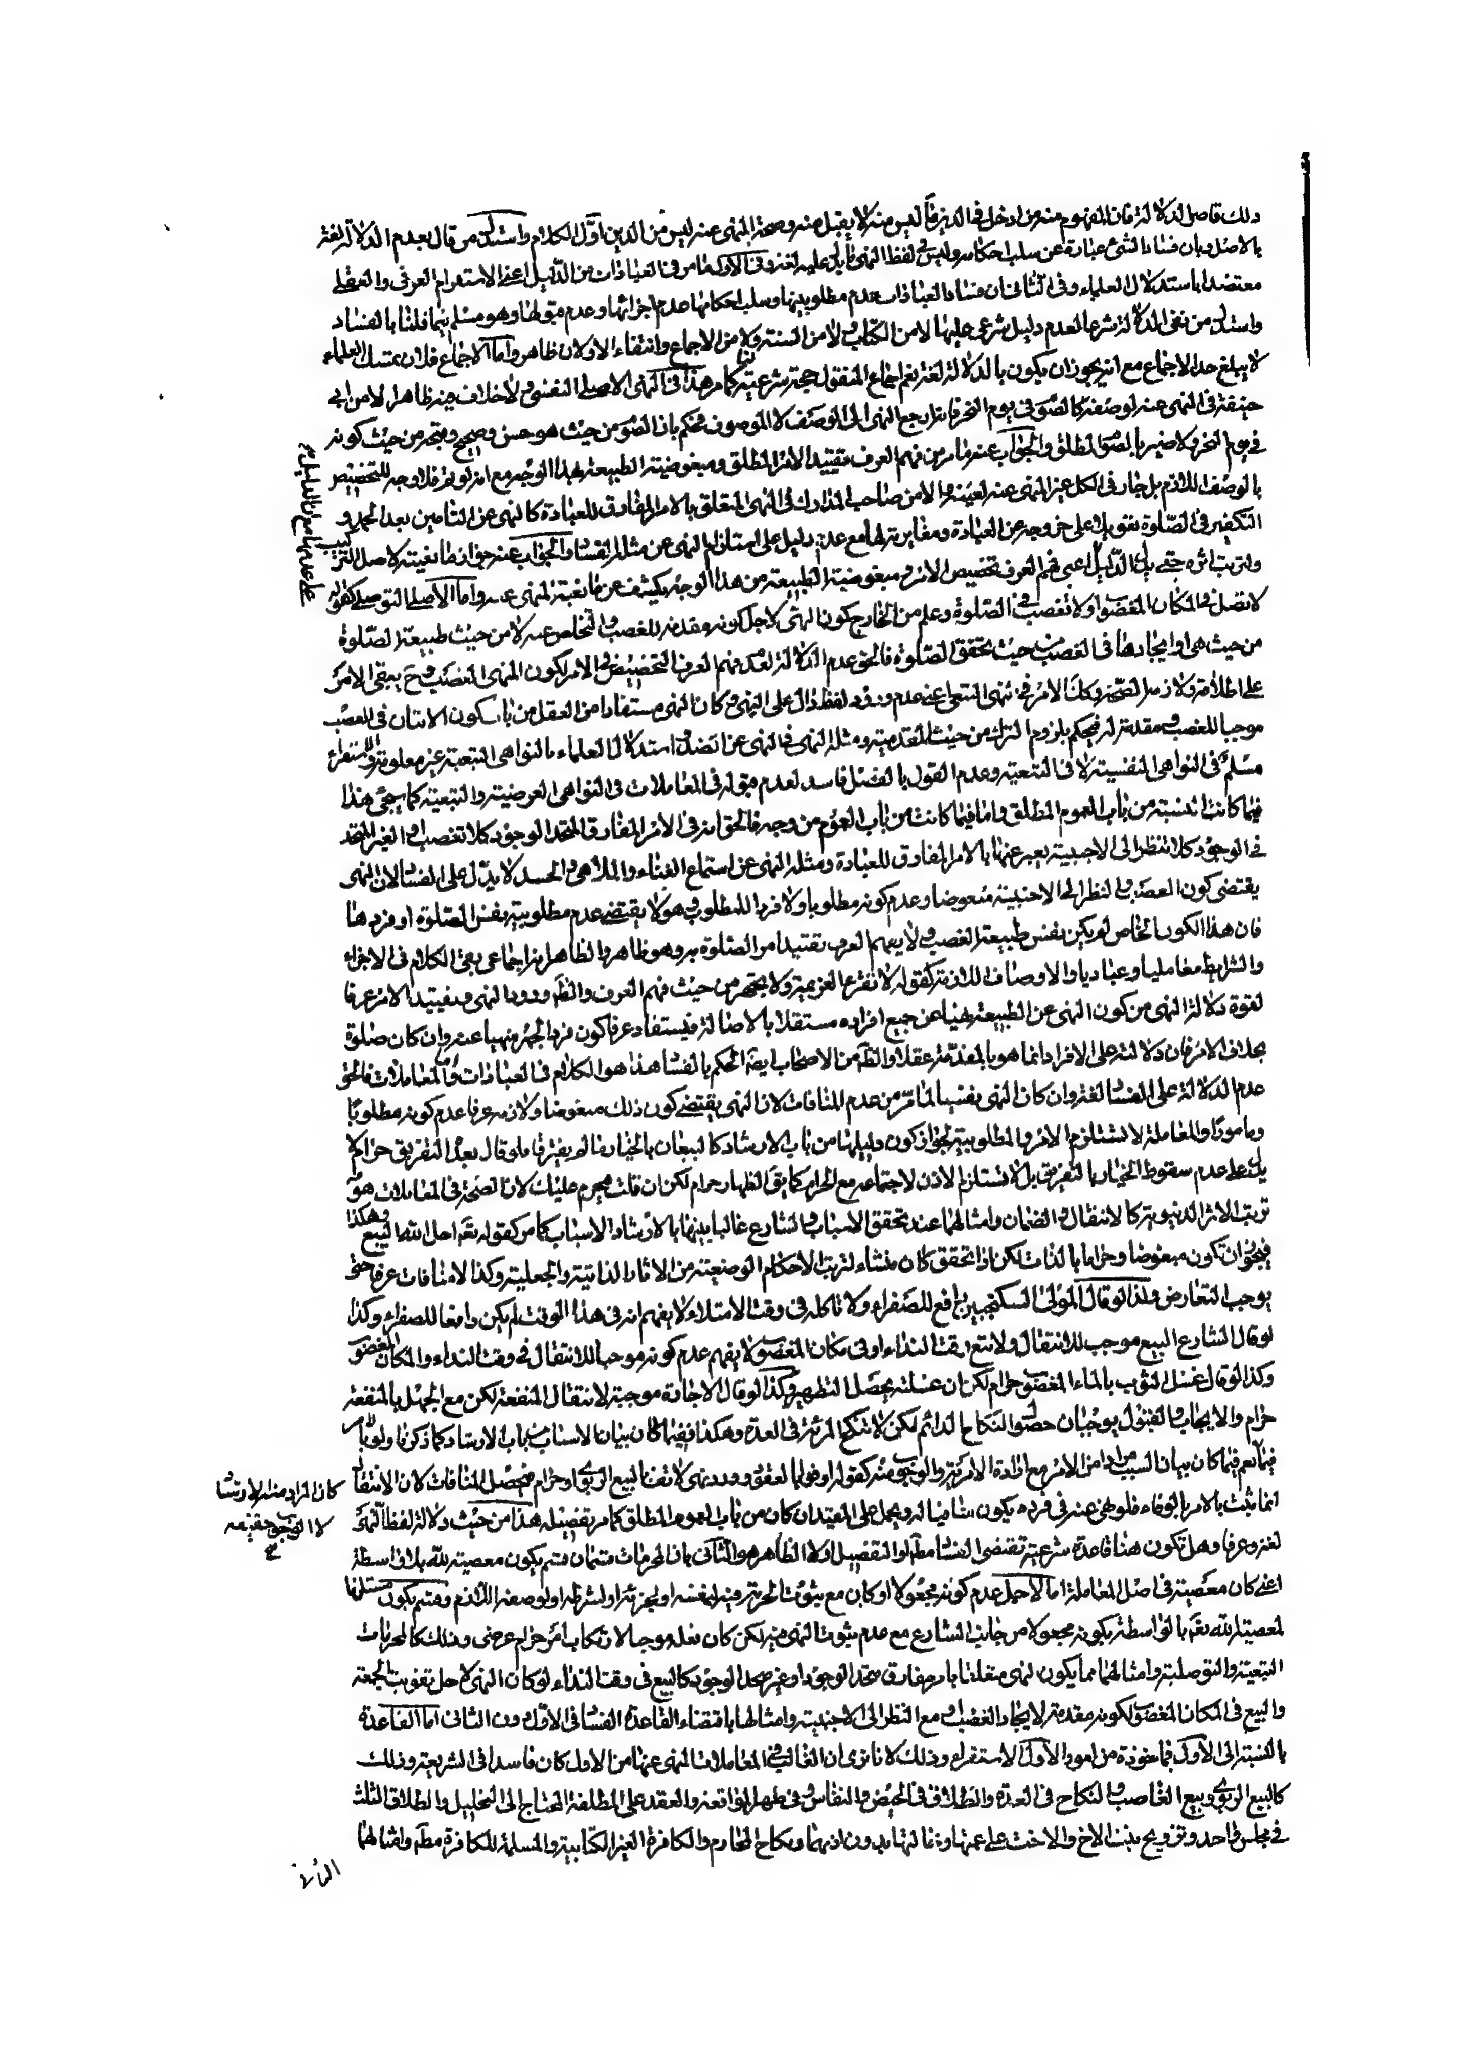 ذلك قاصل لدلالة فان المفهوم منه من ادخل في الدين ما ليس منه لا يقبل منه وصحة المنهى عنه ليس من الدين اول الكلام واستدل من قال بعدم الدلالة لغة
بالاصل وبان فساد الشئ عبارة عن سلب احكامه وليس في لفظ النهى ما يدل عليه لغة وفي الاول ما مر في العبادات من الدليل اعنى الاستفهام العرفى والعقلى
معتضدا باستدلال العلماء وفى الثانى ان فساد العبادات عدم مطلوبيتها وسلب احكامها عدم اجزائها وعدم قبولها وهو مسلم فيما قلنا بالفساد
واستدل من نفى الدلالة شرعا لعدم دليل شرعى عليها لا من الكتاب ولا من السنة ولا من الاجماع وانتفاء الاولان ظاهر واما الاجماع فلان تمسك العلماء
لا يبلغ حد الاجماع مع انه يجوز ان يكون بالدلالة لغة نعم اجماع المنقول حجة شرعية كما مر هذا في النهى الاصلى النفسى ولا خلاف فيه ظاهرا الا من ابى
حنيفة في النهى عنه لوصفه كالصوم في يوم النحر فانه ارجع النهى الى الوصف لا الموصوف فحكم بان الصوم من حيث هو حسن وصحيح وقبحه من حيث كونه
في يوم النحر ولا ضير بالصوم المطلق والجواب عنه ما مر من فهم العرف تقييد الامر المطلق ومبغوضية الطبيعة بهذا الوجه مع انه لو تم فلا وجه للتخصيص
بالوصف اللازم بل جار في الكل غير المنهى عنه لعينه والا من صاحب المدارك في النهى المتعلق بالامر المفارق للعبادة كالنهى عن التأمين بعد الحمد و
التكفير في الصلوة بقول يدل على خروجه عن العبادة ومغايرته لها مع عدم دليل على استلزام النهى عن مثله الفساد والجواب عنه
ولترتب اثره حتى يدل الدليل اعنى فهم العرف تخصيص الامر ومبغوضية الطبيعة من هذا الوجه يكشف عن مانعية المنهى عنه واما الاصلى التوصلى كقوله
لا تصل في المكان المغصوب او لا تغصب في الصلوة وعلم من الخارج كون النهى لاجل كونه مقدمة للغصب والتخلص عنه لا من حيث طبيعة الصلوة
من حيث هى او ايجادها في الغصب من حيث تحقق الصلوة فالحق عدم الدلالة لعدم فهم العرف التخصيص في الامر لكون المنهى الغصب وح يبقى الامر
على اطلاقه ولازمه الصحة وكك الامر في نهى التبعى اعنى عدم ورود لفظ دال على النهى وكان النهى مستفادا من العقل من باب كون الاتيان في الغصب
موجبا للغصب ومقدمة له فيحكم بلزوم الترك من حيث المقدمية ومثله النهى في النهى عن الضد واستدلال العلماء بالنواهى التبعية غير معلوم والاستقراء
مسلم في النواهى النفسية لا في التبعية وعدم القول بالفصل فاسد لعدم قبوله في المعاملات في النواهى العرضية والتبعية كما سيجئ هذا
فيما كانت النسبة من باب العموم المطلق واما فيما كانت من باب العموم من وجه فالحق انه في الامر المفارق المتحد الوجود كلا تغصب او الغير المتحد
في الوجود كلا تنظر الى الاجنبية يعبر عنها بالامر المفارق للعبادة ومثله النهى عن استماع الغناء والملاهى والحسد لا يدل على الفساد لان النهى
يقتضى كون الغصب والنظر الى الاجنبية مبغوضا وعدم كونه مطلوبا ولا فردا للمطلوب وهو لا يقتضى عدم مطلوبية نفس الصلوة او فردها
فان هذا الكون الخاص لم يكن نفس طبيعة الغصب ولا يفهم العرف تقييدا من الصلوة به وهو ظاهر والظاهر انه اجماعى بقى الكلام في الاجزاء
والشرايط معامليا وعباديا والاوصاف اللازمة كقوله لا تقرء العزيمة ولا تجهر من حيث فهم العرف والظ ورود النهى وتقييد الامر عرفا
لقوة دلالة النهى من كون النهى عن الطبيعة نهيا عن جميع افراده مستقلا بالاصالة فيستفاد عرفا كون فرد الجهر منهيا عنه وان كان صلوة
بخلاف الامر فان دلالته على الافراد انما هو بالمقدمة عقلا والظ من الاصحاب ايضا الحكم بالفساد هذا هو الكلام في العبادات واما المعاملات فالحق
عدم الدلالة على الفساد لغة وان كان النهى نفسيا لما مر من عدم المنافات لان النهى يقتضى كون ذلك مبغوضا ولازمه عرفا عدم كونه مطلوبا
ومامورا والمعاملة لا تستلزم الامر والمطلوبية لجواز كون دليلها من باب الارشاد كالبيعان بالخيار ما لم يفترقا فلو قال بعد التفريق حرام لا
يدل على عدم سقوط الخيار بالتفريق بل لا تستلزم الاذن لاجتماعه مع الحرام كما يق الظهار حرام لكن ان قلت يحرم عليك لان الصحة في المعاملات هو
ترتب الاثر الدنيوية كالانتقال والضمان وامثالهما عند تحقق الاسباب والشارع غالبا يبينها بالارشاد والاسباب كما مر كقوله تعالى احل الله البيع وهكذا
فيجوز ان تكون مبغوضا وحراما بالذات لكن اذا تحقق كان منشاء لترتب الاحكام الوضعية من الاثار الذاتية والجعلية وكذا لا منافات عرفا حتى
يوجب التعارض ولذا لو قال المولى السكنجبين رافع للصفراء ولا تاكله في وقت الامتلاء لا يفهم انه في هذا الوقت لم يكن دافعا للصفراء وكذا
لو قال الشارع البيع موجب للانتقال ولا تبع وقت النداء او في مكان المغصوب لا يفهم عدم كونه موجبا للانتقال في وقت النداء والمكان المغصوب
وكذا لو قال غسل الثوب بالماء المغصوب حرام لكن ان غسلته يحصل التطهير وكذا لو قال الاجارة موجبة لانتقال المنفعة لكن مع الجهل بالمنفعة
حرام والايجاب والقبول يوجبان حصول النكاح الدائم لكن لا تنكح المرئة في العدة وهكذا ففيما كان بيان الاسباب من باب الارشاد كما ذكرنا
نعم فيما كان بيان السبب مرادا من الامر مع ارادة الامرية والوجوب منه كقوله اوفوا بالعقود وورد نهى لا تفعل البيع الربوى او حرام فحصل المنافات لان الانتقال
انما يثبت بالامر بالوفاء فلو نهى عنه في فرده يكون منافيا له ويحمل على المقيد ان كان من باب العموم المطلق كما مر تفصيله هذا من حيث دلالة لفظ النهى
لغة وعرفا وهل تكون هنا قاعدة شرعية تقتضى الفساد مط او التفصيل اولا الظاهر هو الثانى بان المحرمات قسمان قسم يكون معصية لله بلا واسطة
اعنى كان معصيته في اصل المعاملة اما لاجل عدم كونه مجعولا او كان مع ثبوت الحرمة فيه لنفسه او لجزئه او لشرطه او لوصفه اللازم وقسم يكون مستلزما
لمعصية الله تعالى بالواسطة بكونه مجعولا من جانب الشارع مع عدم ثبوت النهى فيه لكن كان فعله موجبا لارتكاب امر حرام عرضى وذلك كالمحرمات
التبعية والتوصلية وامثالهما مما يكون النهى متعلقا بامر مفارق متحد الوجود او غير متحد الوجود كالبيع في وقت النداء لو كان النهى لاجل تفويت الجمعة
والبيع في المكان المغصوب لكونه مقدمة لايجاد الغصب او مع النظر الى الاجنبية وامثالها باقتضاء القاعدة الفساد في الاول دون الثانى اما القاعدة
بالنسبة الى الاول فماخوذة من امور الاول الاستقراء وذلك لانا نرى ان الغالب في المعاملات المنهى عنها من الاول كان فاسدا في الشريعة وذلك
كالبيع الربوى وبيع الغاصب والنكاح في العدة والطلاق في الحيض والنفاس وفي طهر المواقعة والعقد على المطلقة المحتاج الى التحليل والطلاق الثلث
في مجلس واحد وتزويج بنت الاخ والاخت على عمتها وخالتها بدون اذنهما ونكاح المحارم والكافرة الغير الكتابية والمسلمة للكافر مط وامثالها
كان المراد منه الارشاد
لا الوجوب حقيقة
الثانى